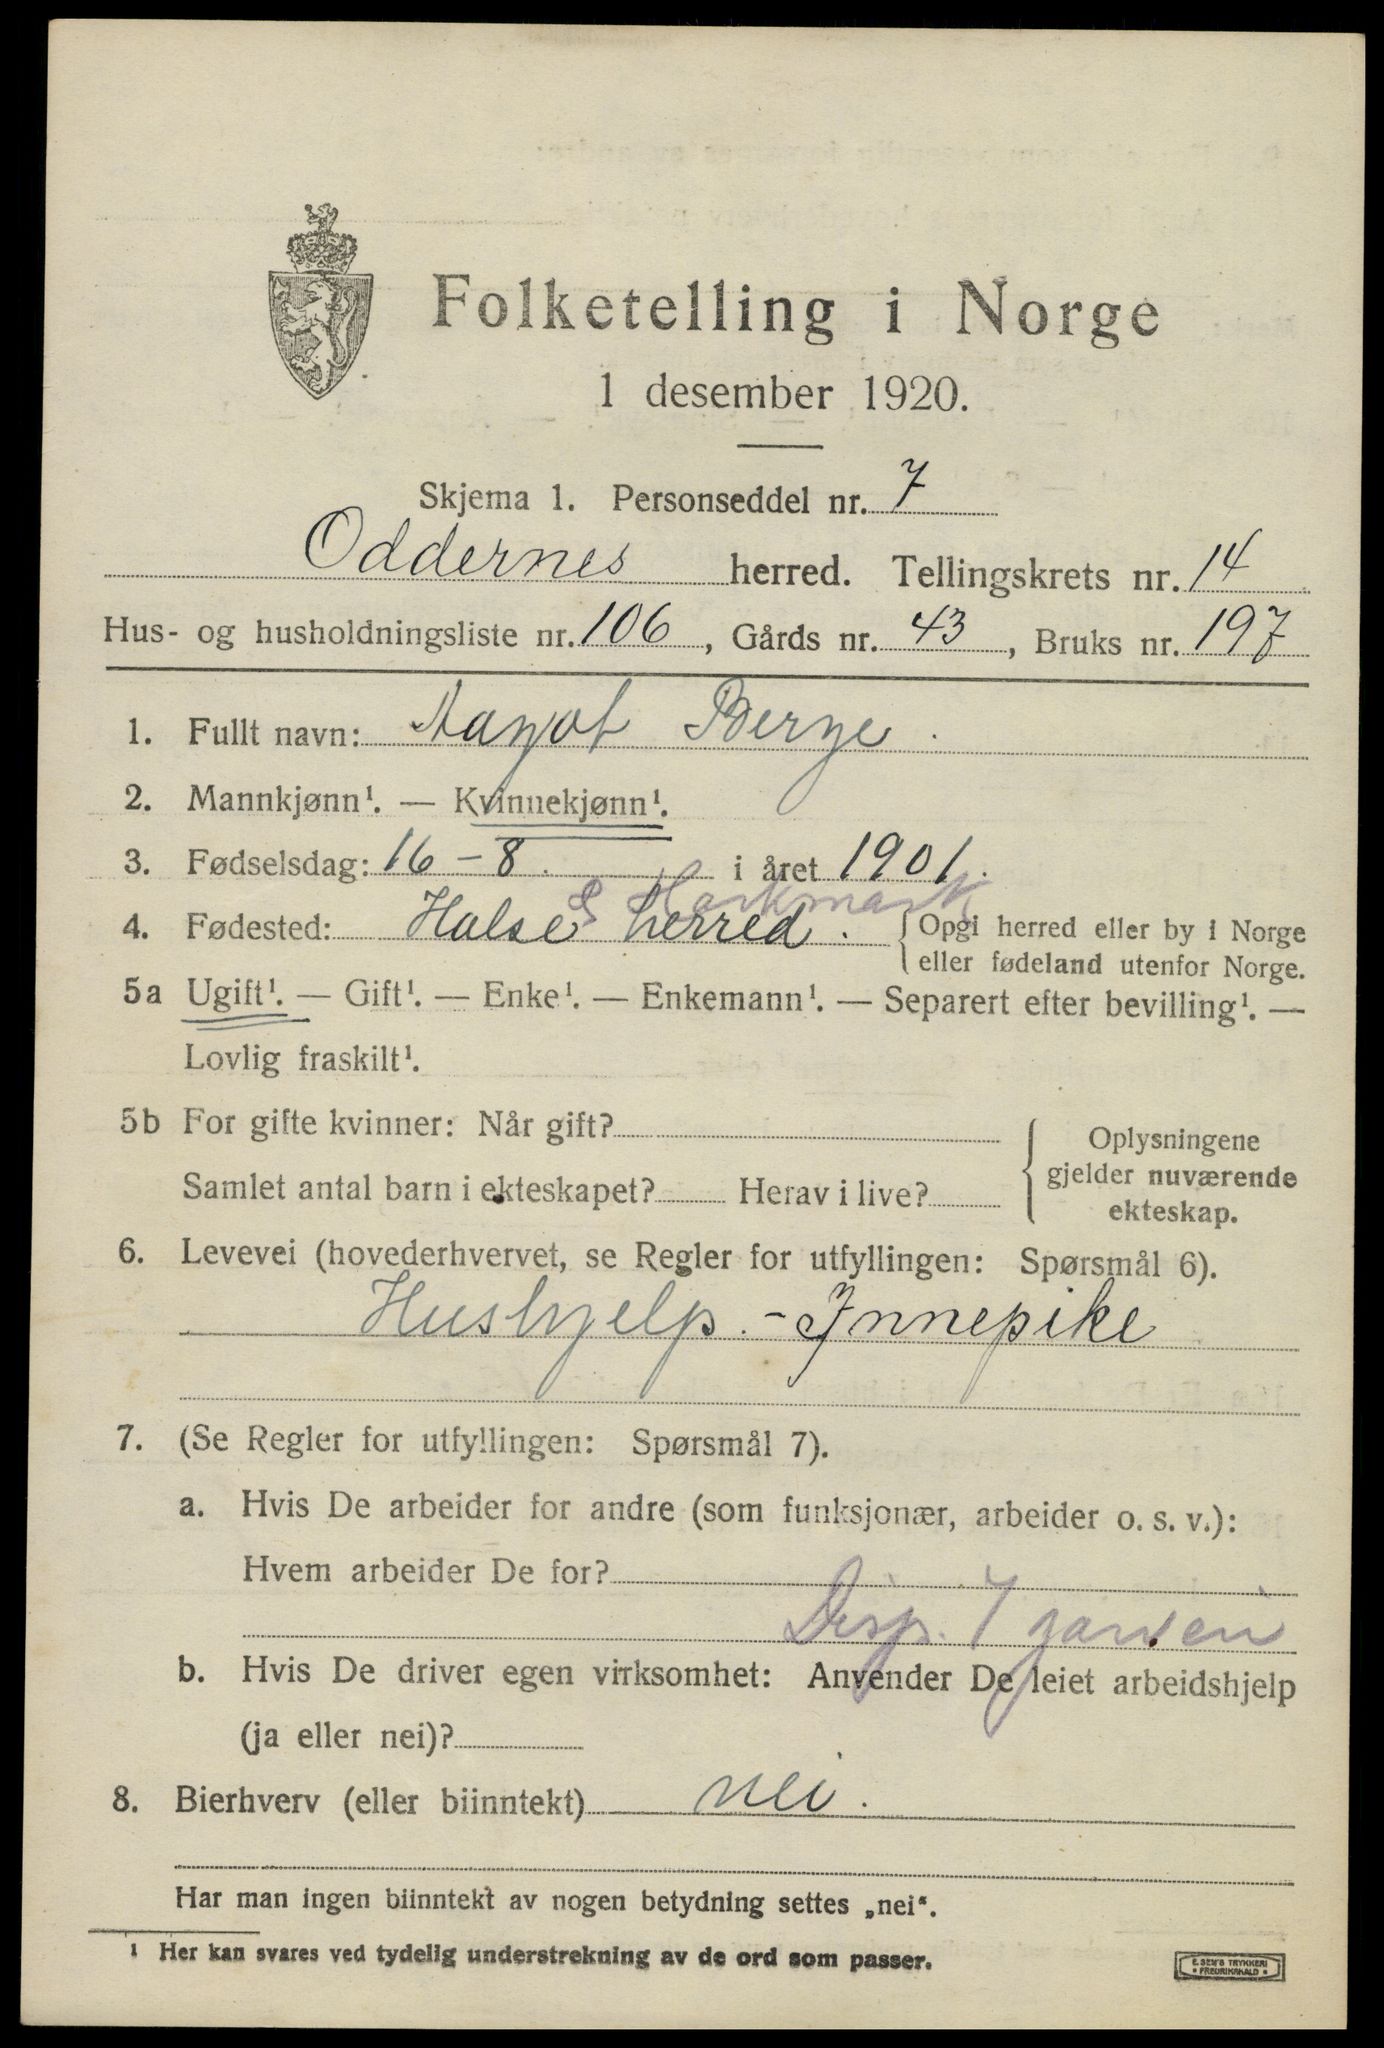 Folketelling i Norge
1 desember 1920.
Skjema 1. Personseddel nr. 7
Oddernes herred. Tellingskrets nr. 14
Hus- og husholdningsliste nr. 106, Gårds nr. 43, Bruks nr. 197
1. Fullt navn: Aagot Berge.
2. Mannkjønn¹. — Kvinnekjønn¹.
3. Fødselsdag: 16 - 8. i året 1901.
& Harkmark
4. Fødested: Halse herred. {Opgi herred eller by i Norge
eller fødeland utenfor Norge.
5a Ugift¹. — Gift¹. — Enke¹. — Enkemann¹. — Separert efter bevilling¹. —
Lovlig fraskilt¹.
5b For gifte kvinner: Når gift?
Samlet antal barn i ekteskapet? Herav i live?
{Oplysningene
gjelder nuværende
ekteskap.
6. Levevei (hovederhvervet, se Regler for utfyllingen: Spørsmål 6).
Hushjelp. - Innepike
7. (Se Regler for utfyllingen: Spørsmål 7).
a. Hvis De arbeider for andre (som funksjonær, arbeider o. s. v.):
Hvem arbeider De for?
Disp.
b. Hvis De driver egen virksomhet: Anvender De leiet arbeidshjelp
(ja eller nei)?
8. Bierhverv (eller biinntekt) nei.
Har man ingen biinntekt av nogen betydning settes „nei“.
¹ Her kan svares ved tydelig understrekning av de ord som passer.
E. SEM'S TRYKKERI
• FREDRIKSHALD •